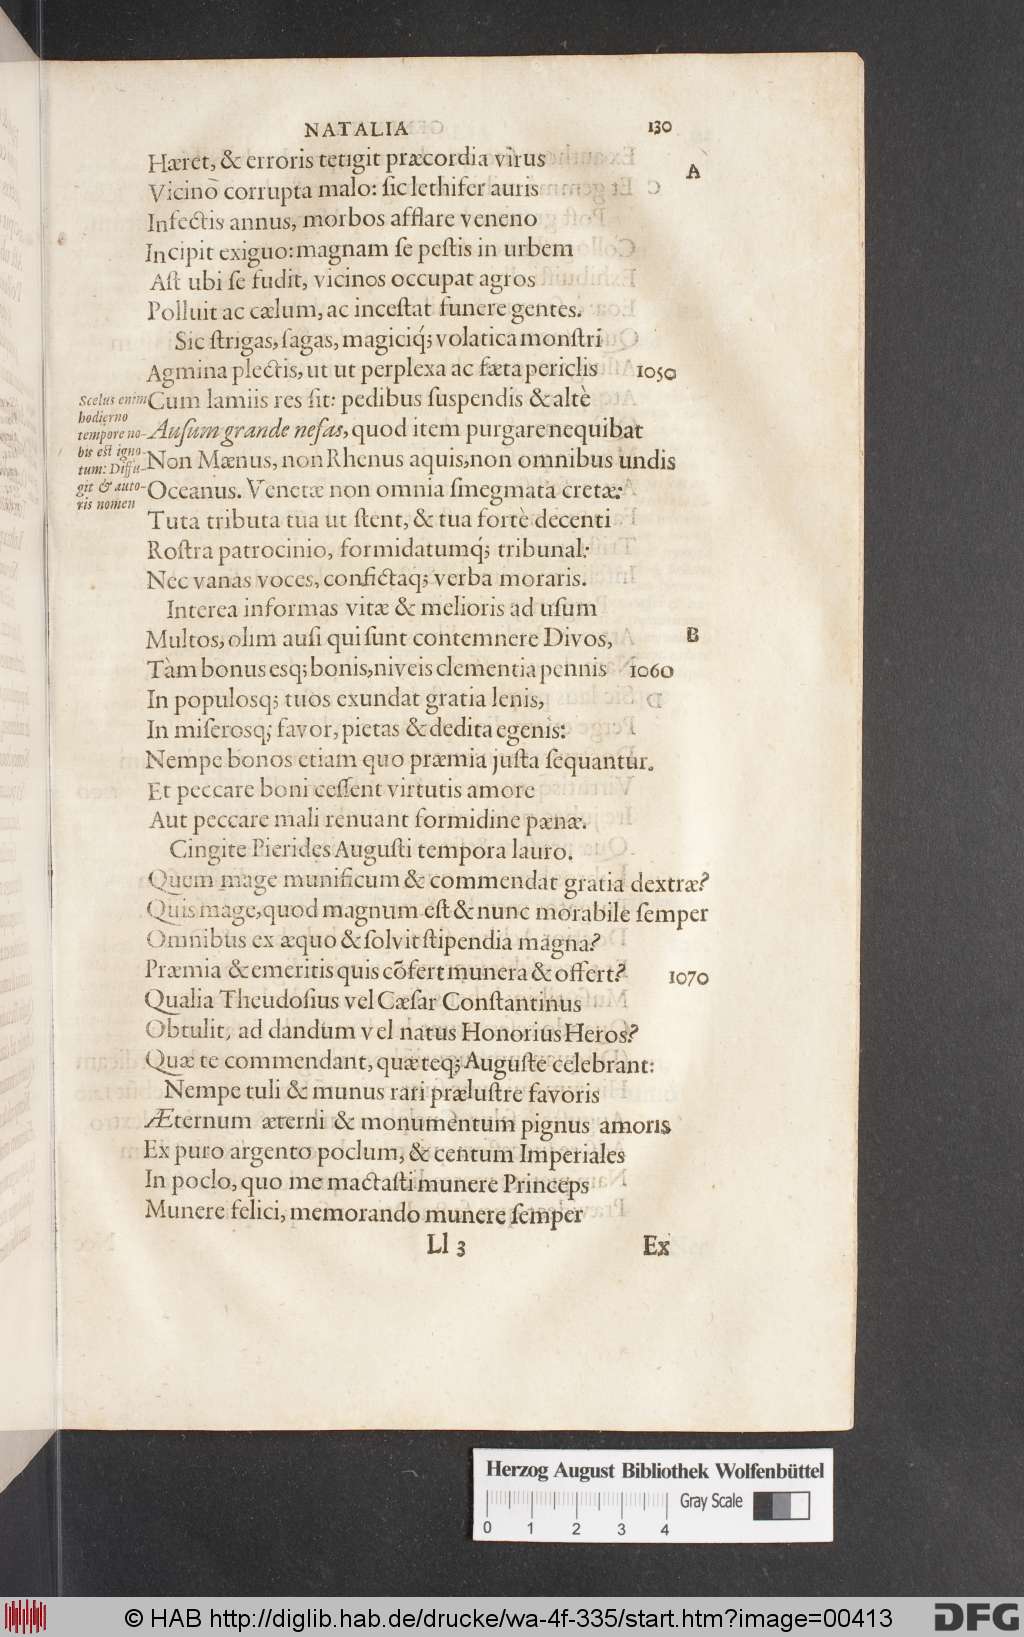 NATALIA 130
Hæret, & erroris tetigit præcordia virus
A
Vicinō corrupta malo: ſic lethifer auris
Infectis annus, morbos afflare veneno
Incipit exiguo: magnam ſe peſtis in urbem
Aſt ubi ſe fudit, vicinos occupat agros
Polluit ac cælum, ac inceſtat funere gentes.
Sic ſtrigas, ſagas, magiciq́; volatica monſtri
Agmina plectis, ut ut perplexa ac fæta periclis 1050
Cum lamiis res ſit: pedibus ſuspendis & altè
Auſum grande nefas, quod item purgare nequibat
Non Mænus, non Rhenus aquis, non omnibus undis
Oceanus. Venetæ non omnia ſmegmata cretæ:
Scelus enim
hodierno
tempore no-
bis est igno-
tum: Diffu-
git & auto-
ris nomen
Tuta tributa tua ut ſtent, & tua fortè decenti
Roſtra patrocinio, formidatumq́; tribunal:
Nec vanas voces, confictaq; verba moraris.
Interea informas vitæ & melioris ad uſum
Multos, olim auſi qui ſunt contemnere Divos,
B
Tàm bonus esq; bonis, niveis clementia pennis 1060
In populosq; tuos exundat gratia lenis,
In miſerosq; favor, pietas & dedita egenis:
Nempe bonos etiam quo præmia juſta ſequantur.
Et peccare boni ceſſent virtutis amore
Aut peccare mali renuant formidine pænæ.
Cingite Pierides Auguſti tempora lauro.
Quem mage munificum & commendat gratia dextræ?
Quis mage, quod magnum eſt & nunc morabile ſemper
Omnibus ex æquo & ſolvit ſtipendia magna?
Præmia & emeritis quis cōfert munera & offert? 1070
Qualia Theudoſius vel Cæſar Conſtantinus
Obtulit, ad dandum vel natus Honorius Heros?
Quæ te commendant, quæ teq; Auguſte celebrant:
Nempe tuli & munus rari præluſtre favoris
Æternum æterni & monumentum pignus amoris
Ex puro argento poclum, & centum Imperiales
In poclo, quo me mactaſti munere Princeps
Munere felici, memorando munere ſemper
Ll 3 Ex
Herzog August Bibliothek Wolfenbüttel
Gray Scale
0 1 2 3 4
© HAB http://diglib.hab.de/drucke/wa-4f-335/start.htm?image=00413
DFG